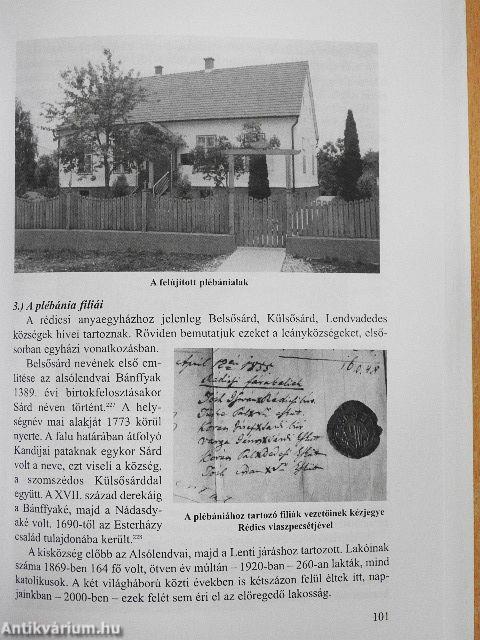 A felújított plébánialak
3.) A plébánia filiái
A rédicsi anyaegyházhoz jelenleg Belsősárd, Külsősárd, Lendvadedes
községek hívei tartoznak. Röviden bemutatjuk ezeket a leányközségeket, első-
sorban egyházi vonatkozásban.
Belsősárd nevének első em-
lítése az alsólendvai Bánffyak
1389. évi birtokfelosztásakor
Sárd néven történt.²²⁷ A hely-
ségnév mai alakját 1773 körül
nyerte. A falu határában átfolyó
Kandijai pataknak egykor Sárd
volt a neve, ezt viseli a község,
a szomszédos Külsősárddal
együtt. A XVII. század derekáig
a Bánffyaké, majd a Nádasdy-
aké volt. 1690-től az Esterházy
család tulajdonába került.²²⁸
April
1855
A plébániához tartozó filiák vezetőinek kézjegye
Rédics viaszpecsétjével
A kisközség előbb az Alsólendvai, majd a Lenti járáshoz tartozott. Lakóinak
száma 1869-ben 164 fő volt, ötven év múltán – 1920-ban – 260-an lakták, mind
katolikusok. A két világháború közti években is kétszázon felül éltek itt, nap-
jainkban – 2000-ben – ezek felét sem éri el az elöregedő lakosság.
101
Antikvárium.hu